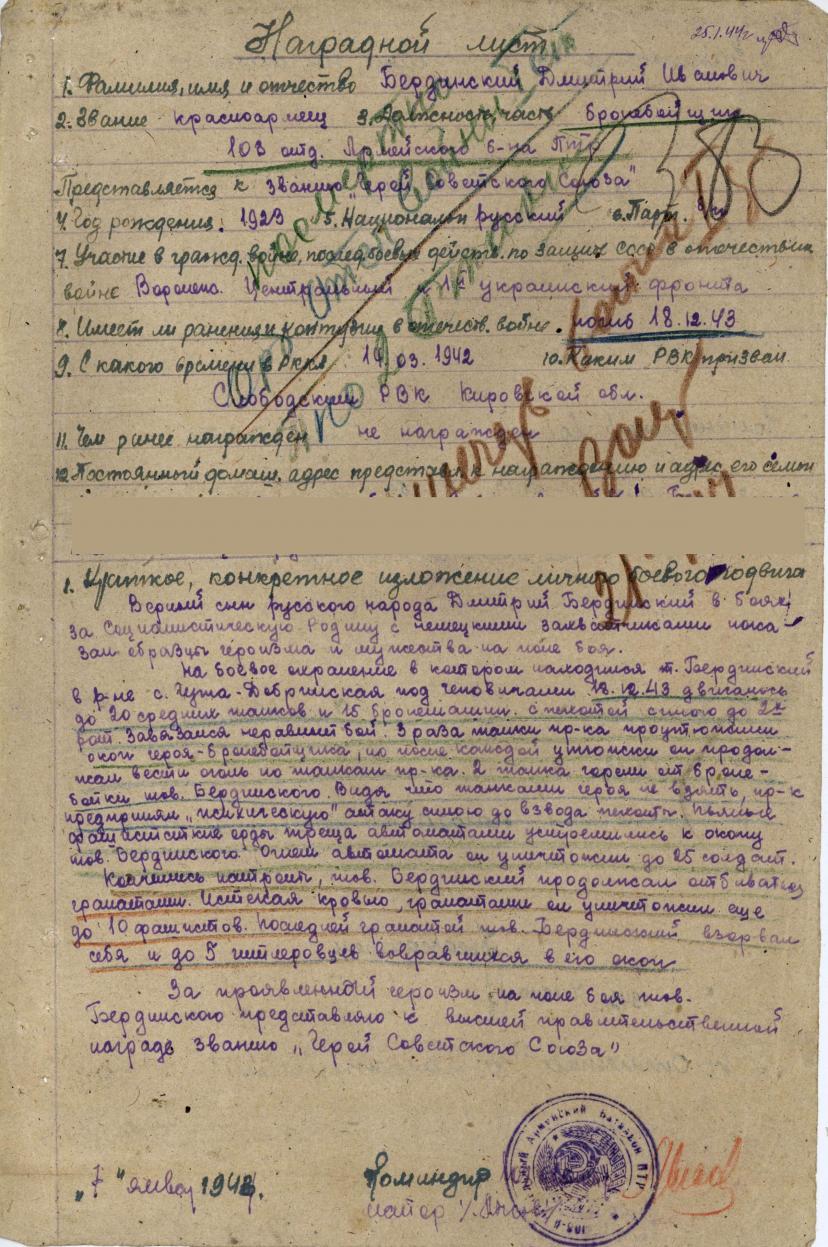 25.1.44г
Наградной лист
1. Фамилия, имя и отчество Бердинский Дмитрий Иванович
2. Звание красноармеец 3. Должность, часть бронебойщик
103 отд. Армейского б-на ПТР
Представляется к званию "Герой Советского Союза"
4. Год рождения. 1923 5. Национальн русский 6. Парт. б/п
7. Участие в гражд. войне, послед. боевых действ. по защите СССР в отечествен
войне Воронеж. Центральный и 1й украинский фронта
8. Имеет ли ранения и контузии в отечеств. войне. погиб 18.12.43
9. С какого времени в РККА 14.03.1942 10. Каким РВК призван
Слободским РВК Кировской обл.
11. Чем ранее награжден не награжден
12. Постоянный домаш. адрес представл. к награждению и адрес его семьи
1. Краткое, конкретное изложение личного боевого подвига
Верный сын русского народа Дмитрий Бердинский в боях
за Социалистическую Родину с немецкими захватчиками пока-
зал образцы героизма и мужества на поле боя.
На боевое охранение в котором находился т. Бердинский
в р-не с. Гута-Добринская под Чеповичами 18.12.43 двигалось
до 20 средних танков и 15 бронемашин с пехотой силою до 2х
рот. Завязался неравный бой. 3 раза танки пр-ка проутюжили
окоп героя-бронебойщика, но после каждой утюжки он продол-
жал вести огонь по танкам пр-ка. 2 танка горели от броне-
бойки тов. Бердинского. Видя что танками героя не взять, пр-к
предпринял "психическую" атаку силою до взвода пехоты. Пьяные
фашистские орды треща автоматами устремились к окопу
тов. Бердинского. Огнем автомата он уничтожил до 25 солдат.
Кончились патроны, тов. Бердинский продолжал отбиваться
гранатами. Истекая кровью, гранатами он уничтожил еще
до 10 фашистов. Последней гранатой тов. Бердинский взорвал
себя и до 5 гитлеровцев ворвавшихся в его окоп
За проявленный героизм на поле боя тов.
Бердинского представляю к высшей правительственной
награде званию "Герой Советского Союза"
"7" января 1944г. Командир
майор